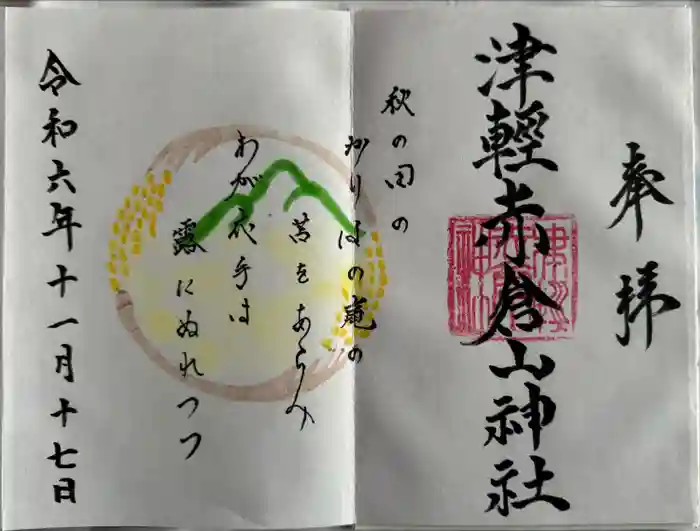 奉拝
津輕赤倉山神社
秋の田の
かりほの庵の
苫をあらみ
わが衣手は
露にぬれつつ
令和六年十一月十七日